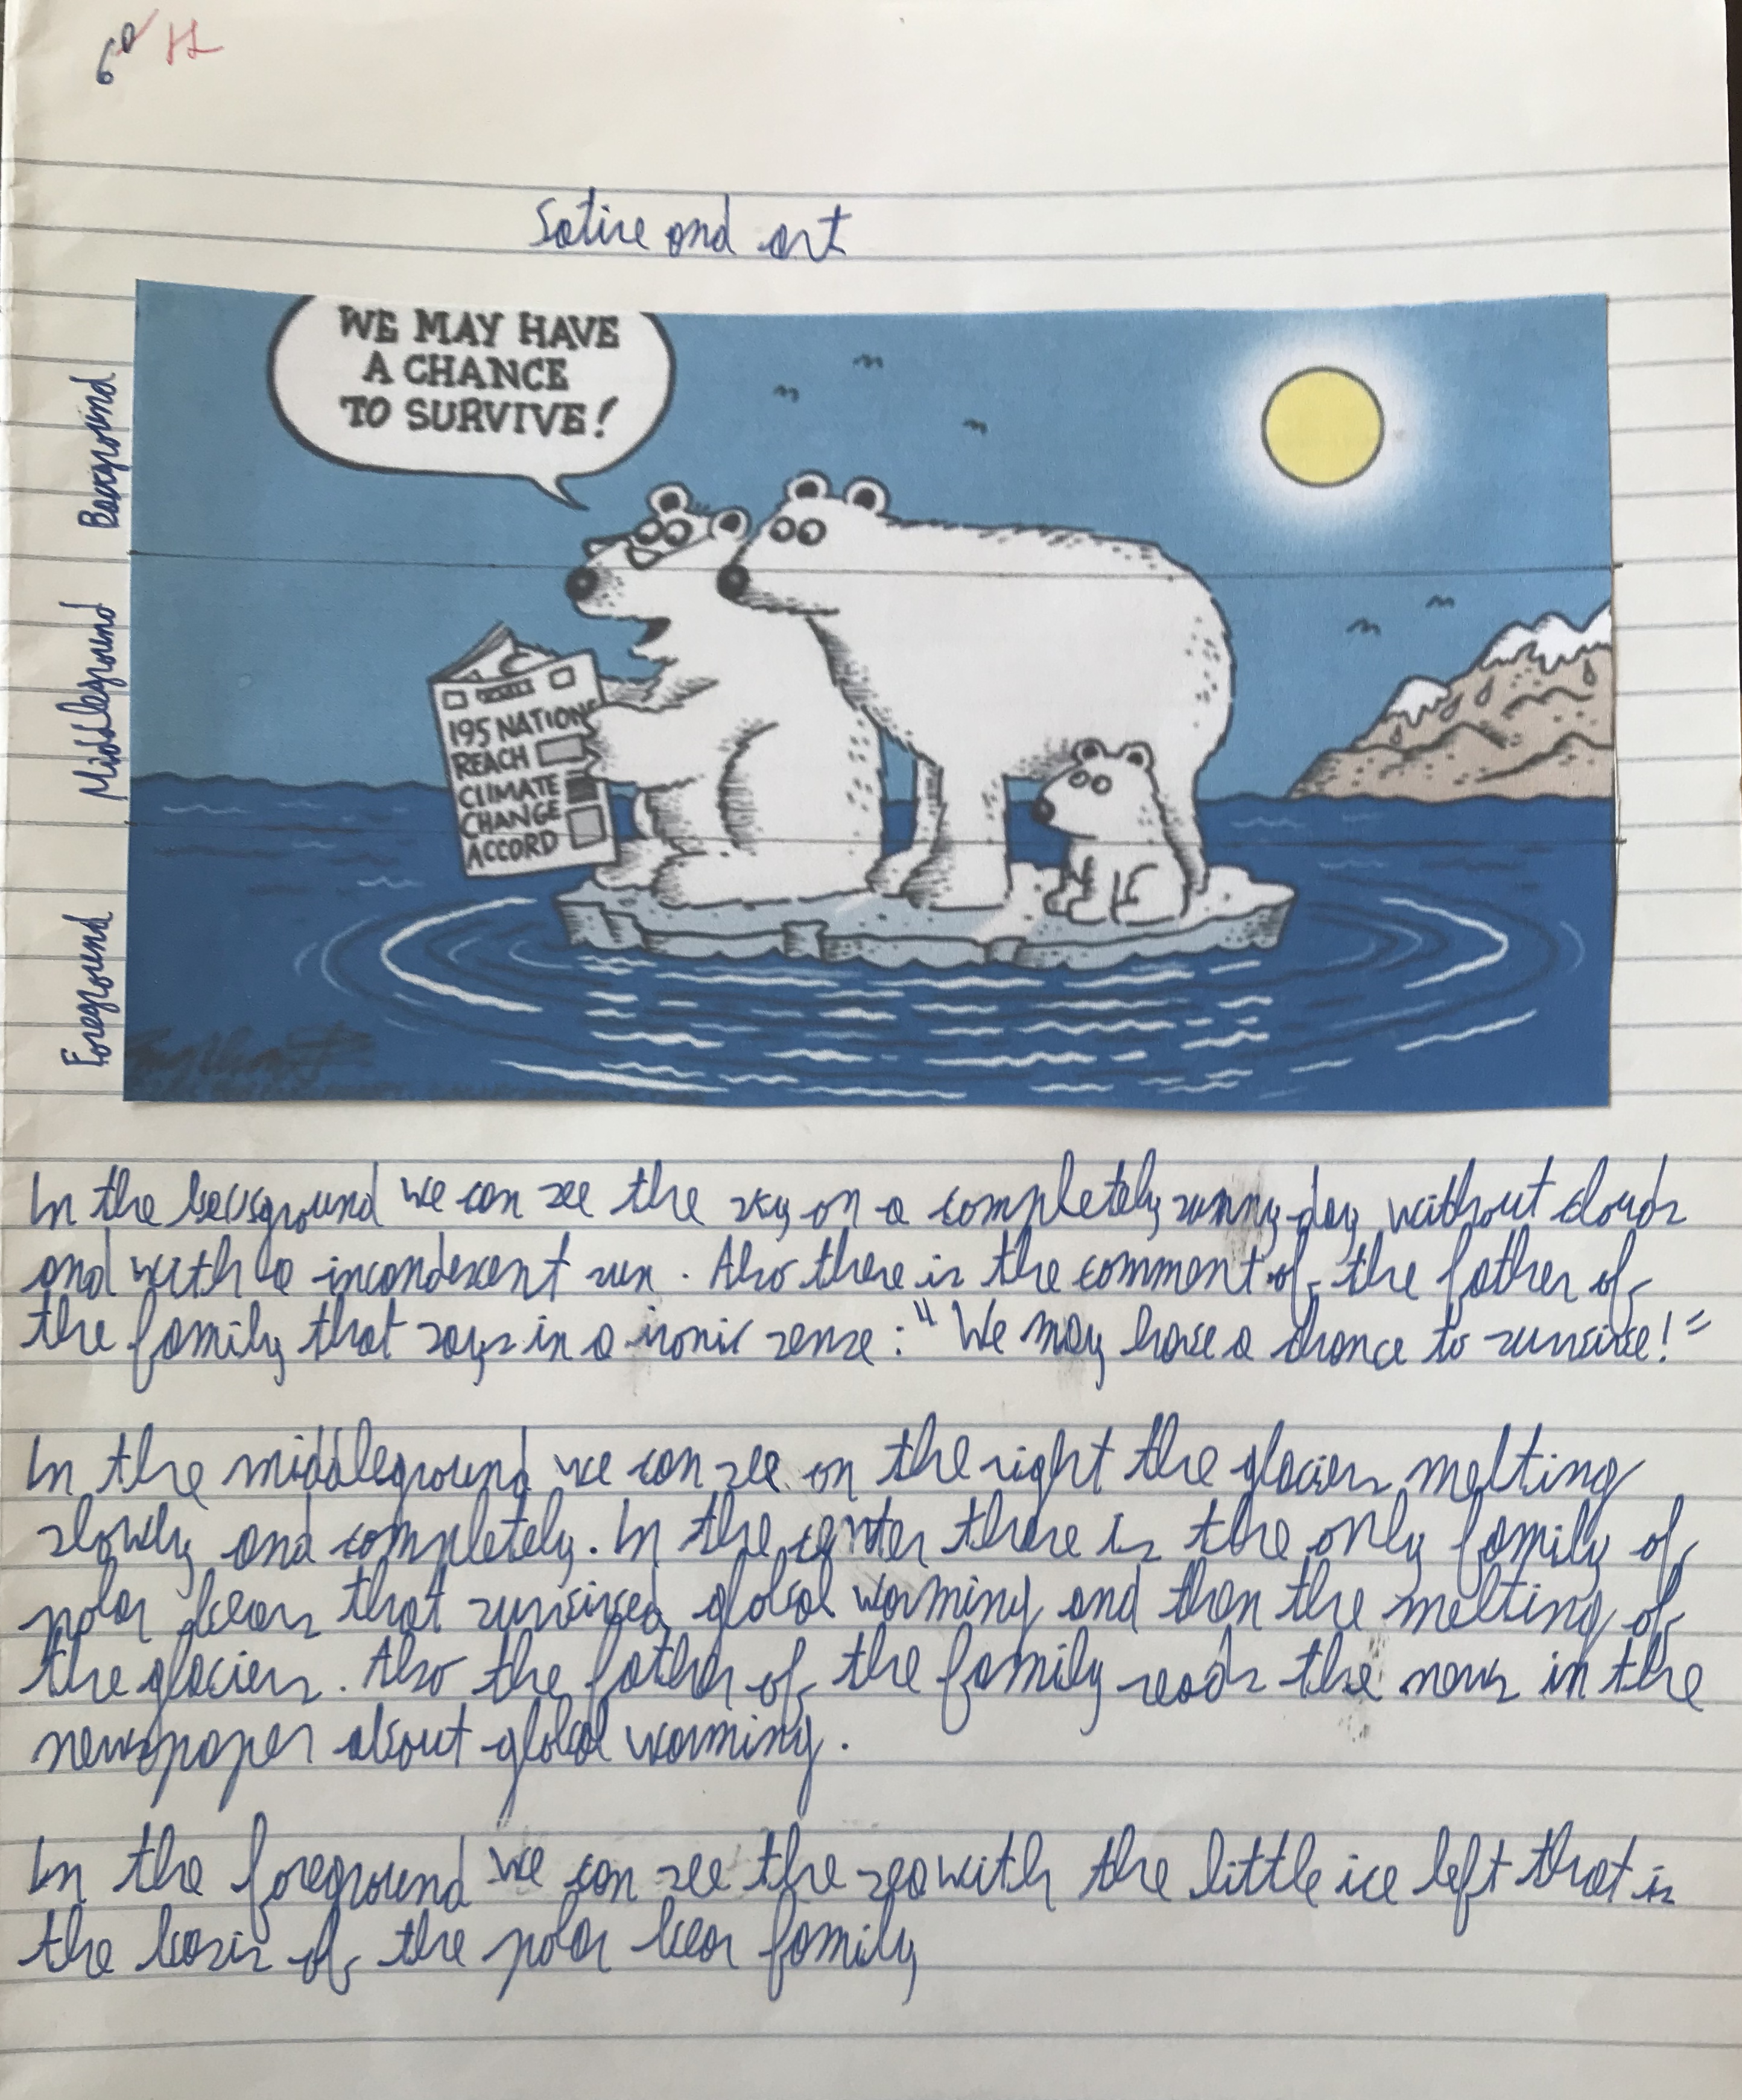 6º H
Satire and art
WE MAY HAVE
A CHANCE
TO SURVIVE!
195 NATIONS
REACH
CLIMATE
CHANGE
ACCORD
Background
Middleground
Foreground
In the background we can see the sky on a completely sunny day without clouds
and with a incandescent sun. Also there is the comment of the father of
the family that says in a ironic sense: "We may have a chance to survive!"
In the middleground we can see on the right the glaciers melting
slowly and completely. In the center there is the only family of
polar bears that survived global warming and then the melting of
the glaciers. Also the father of the family reads the news in the
newspaper about global warming.
In the foreground we can see the sea with the little ice left that is
the basis of the polar bear family